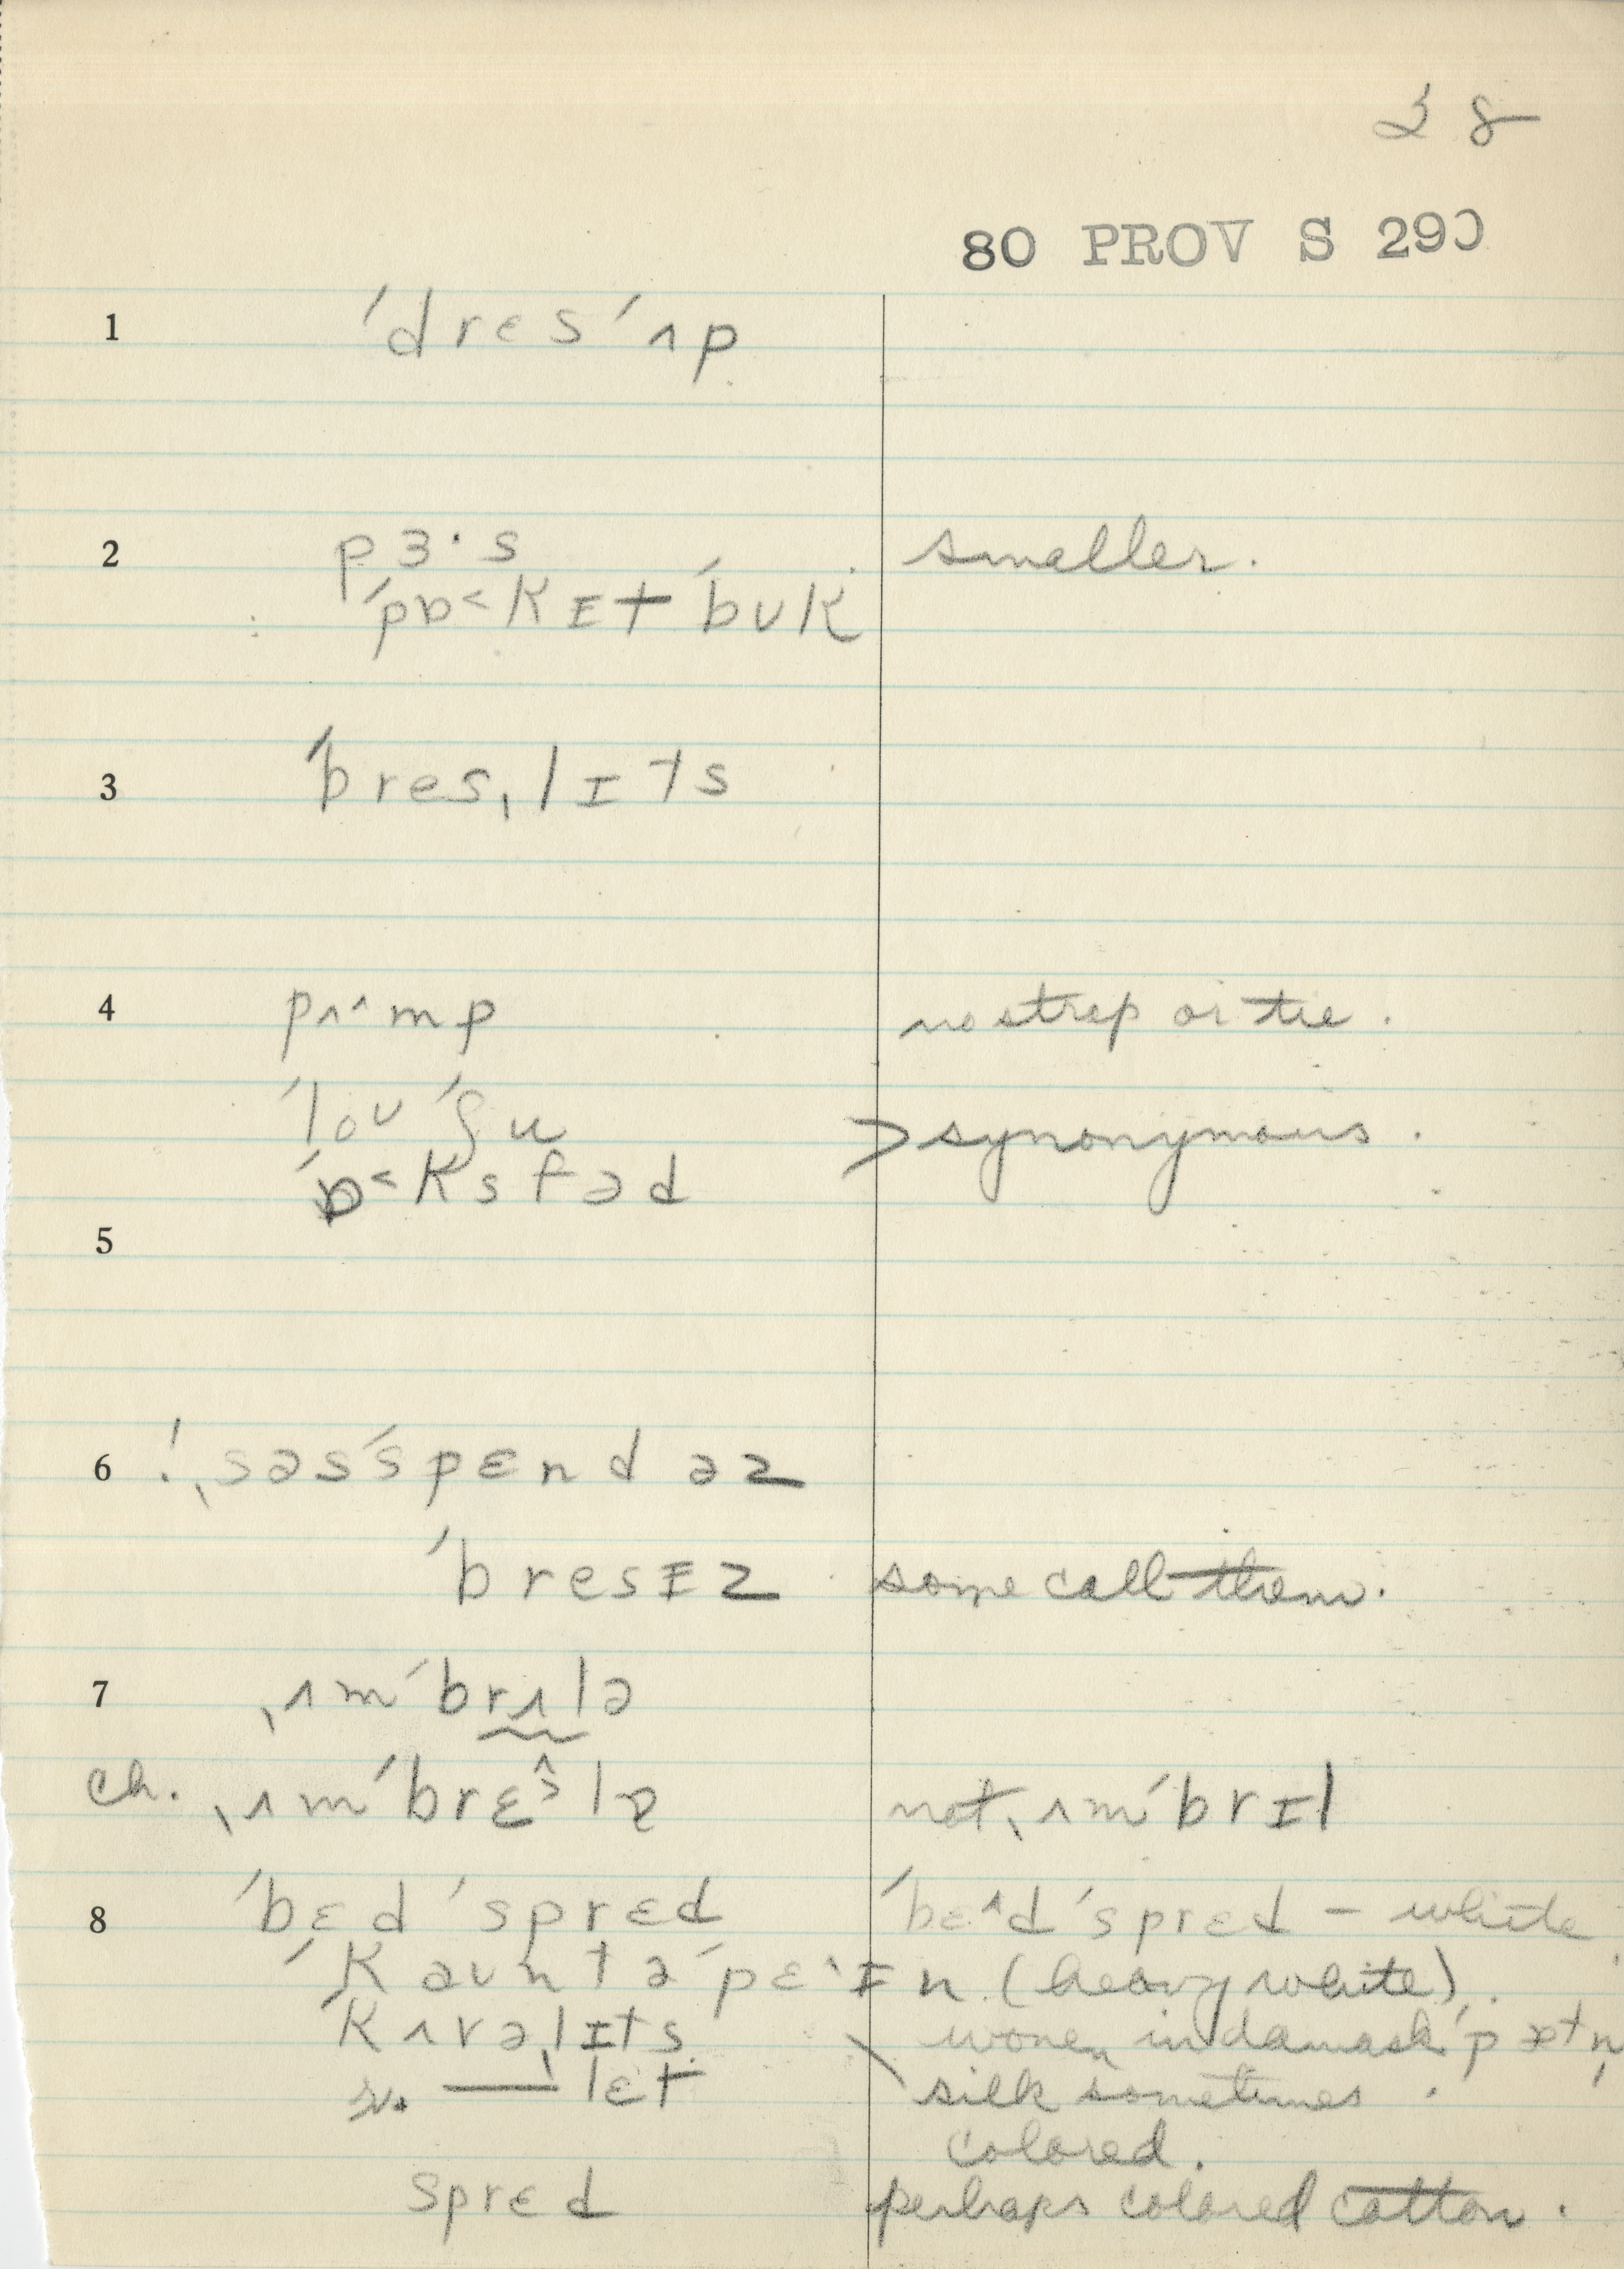 28
80 PROV S 290
1 ˈdres ˈʌp
2 pɜ·s smaller.
ˈpɒ˂kɪt ˈbʊk
3 ˈbresˌlɪts
4 pʌ˄mp no strap or tie.
ˈloʊ ˈʃu > synonymous.
ˈɒ˂ksfəd
5
6 !ˌsəsˈspɛndəz
ˈbresɪz some call them.
7 ˌʌmˈbrʌlə
ch. ˌʌmˈbrɛ˄ə̂lə not ˌʌmˈbrɪl
8 ˈbɛd ˈspred ˈbɛ˄d ˈsprɛd – white.
ˈkəʊntəˈpɛ˄ɪn (heavy white).
ˈkʌvəˌlɪts \ woven in damask ˈpætn̩
r. —ˌlɛt silk sometimes.
colored.
sprɛd perhaps colored cotton.